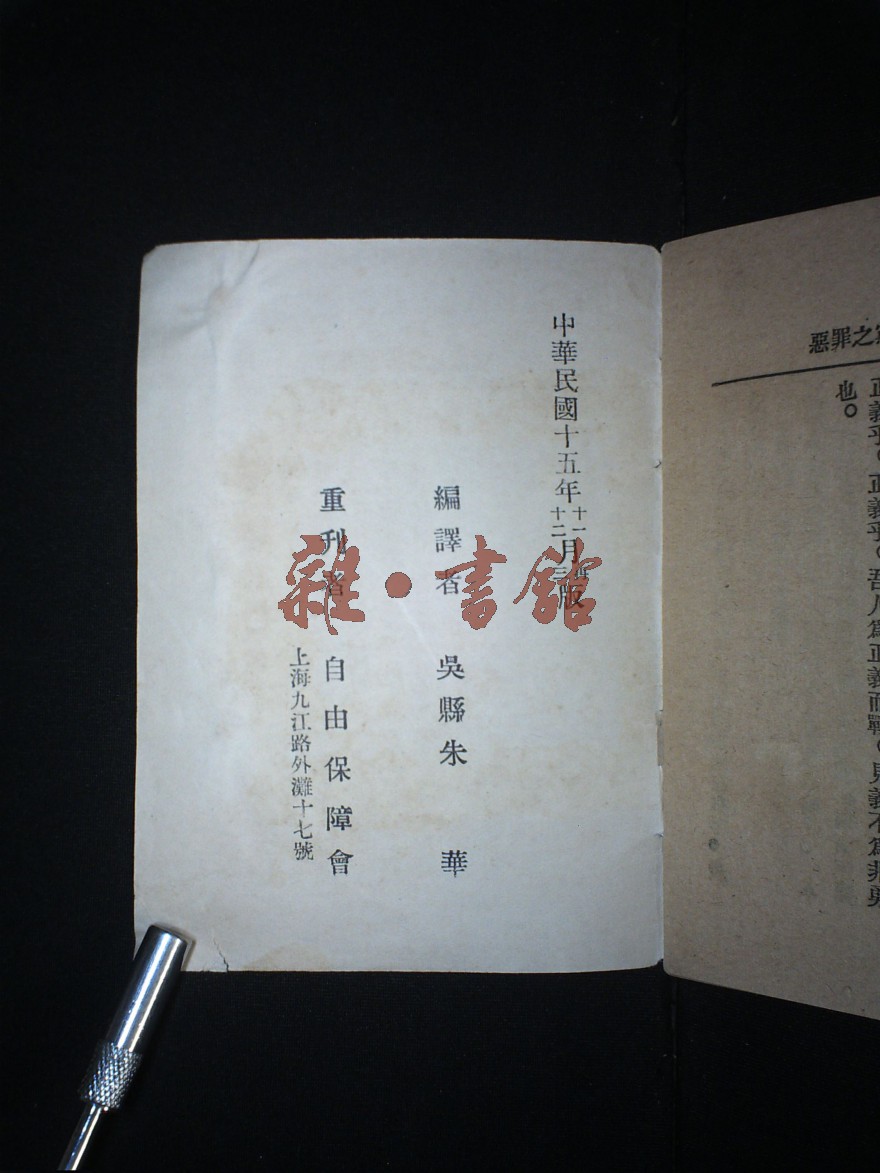 惡罪之
正義乎。正義乎。吾人爲正義而戰。見義不爲非勇
也。
中華民國十五年十一月再版
十二月三版
編譯者 吳縣朱 華
重刊者 自由保障會
上海九江路外灘十七號
雜·書館